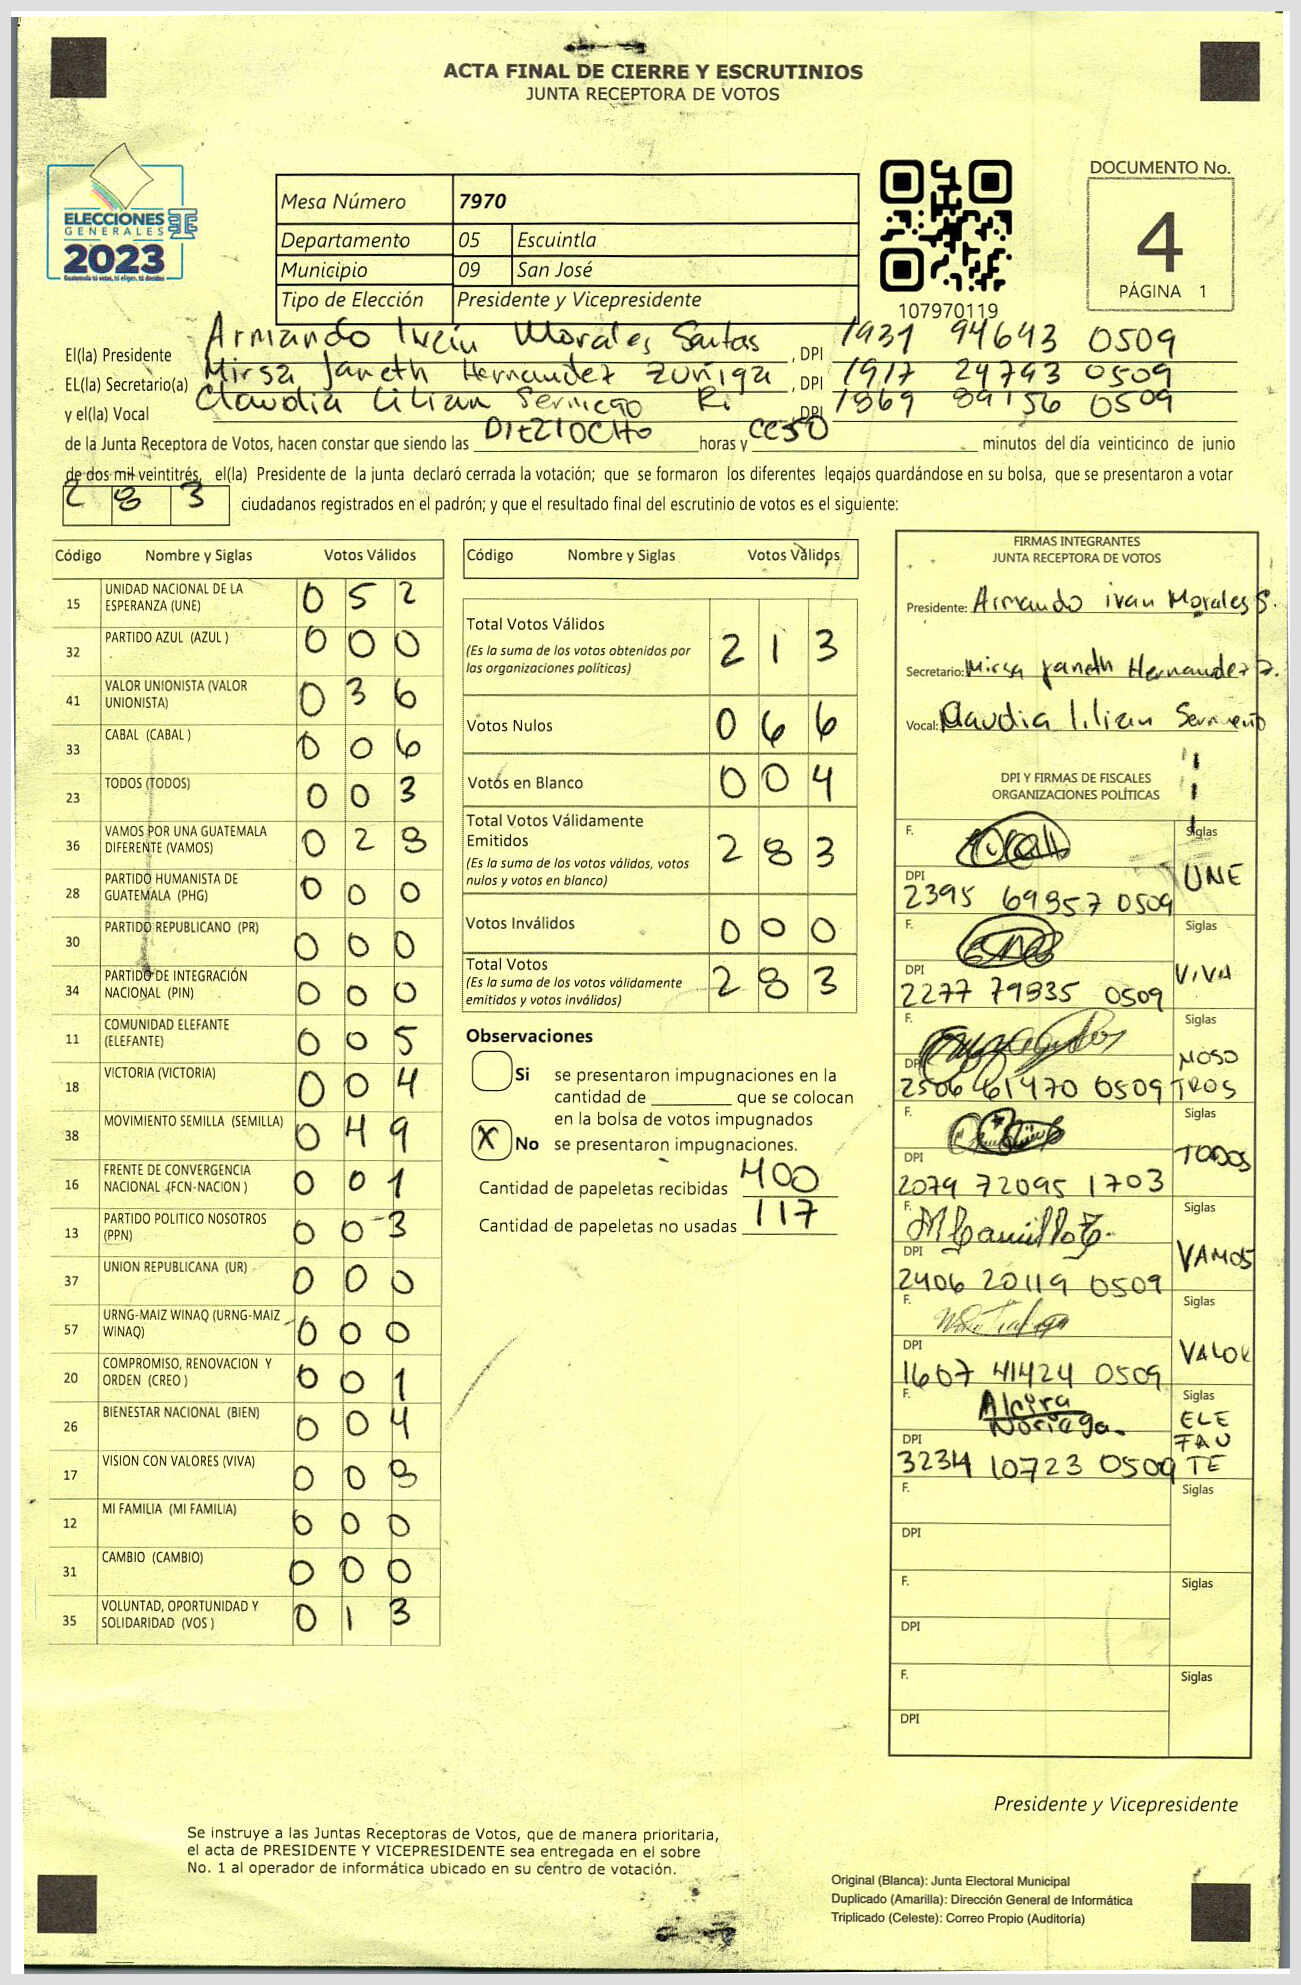 ACTA FINAL DE CIERRE Y ESCRUTINIOS
JUNTA RECEPTORA DE VOTOS
ELECCIONES
GENERALES
2023
Mesa Número 7970
Departamento 05 Escuintla
Municipio 09 San José
Tipo de Elección Presidente y Vicepresidente
107970119
DOCUMENTO No.
4
PÁGINA 1
El(la) Presidente Armando Iván Morales Santos , DPI 1931 94643 0509
EL(la) Secretario(a) Mirsa Janeth Hernandez Zuñiga , DPI 1917 24793 0509
y el(la) Vocal Claudia Lilian Sermeño Ri DPI 1869 89156 0509
de la Junta Receptora de Votos, hacen constar que siendo las DIEZIOCHO horas y CERO minutos del día veinticinco de junio
de dos mil veintitrés, el(la) Presidente de la junta declaró cerrada la votación; que se formaron los diferentes legajos guardándose en su bolsa, que se presentaron a votar
283 ciudadanos registrados en el padrón; y que el resultado final del escrutinio de votos es el siguiente:
Código Nombre y Siglas Votos Válidos
15 UNIDAD NACIONAL DE LA ESPERANZA (UNE) 0 5 2
32 PARTIDO AZUL (AZUL ) 0 0 0
41 VALOR UNIONISTA (VALOR UNIONISTA) 0 3 6
33 CABAL (CABAL ) 0 0 6
23 TODOS (TODOS) 0 0 3
36 VAMOS POR UNA GUATEMALA DIFERENTE (VAMOS) 0 2 8
28 PARTIDO HUMANISTA DE GUATEMALA (PHG) 0 0 0
30 PARTIDO REPUBLICANO (PR) 0 0 0
34 PARTIDO DE INTEGRACIÓN NACIONAL (PIN) 0 0 0
11 COMUNIDAD ELEFANTE (ELEFANTE) 0 0 5
18 VICTORIA (VICTORIA) 0 0 4
38 MOVIMIENTO SEMILLA (SEMILLA) 0 4 9
16 FRENTE DE CONVERGENCIA NACIONAL (FCN-NACION ) 0 0 1
13 PARTIDO POLITICO NOSOTROS (PPN) 0 0 3
37 UNION REPUBLICANA (UR) 0 0 0
57 URNG-MAIZ WINAQ (URNG-MAIZ WINAQ) 0 0 0
20 COMPROMISO, RENOVACION Y ORDEN (CREO ) 0 0 1
26 BIENESTAR NACIONAL (BIEN) 0 0 4
17 VISION CON VALORES (VIVA) 0 0 8
12 MI FAMILIA (MI FAMILIA) 0 0 0
31 CAMBIO (CAMBIO) 0 0 0
35 VOLUNTAD, OPORTUNIDAD Y SOLIDARIDAD (VOS ) 0 1 3
Código Nombre y Siglas Votos Válidos
Total Votos Válidos 2 1 3
(Es la suma de los votos obtenidos por
las organizaciones políticas)
Votos Nulos 0 6 6
Votos en Blanco 0 0 4
Total Votos Válidamente
Emitidos 2 8 3
(Es la suma de los votos válidos, votos
nulos y votos en blanco)
Votos Inválidos 0 0 0
Total Votos 2 8 3
(Es la suma de los votos válidamente
emitidos y votos inválidos)
Observaciones
Si se presentaron impugnaciones en la
cantidad de ________ que se colocan
en la bolsa de votos impugnados
X No se presentaron impugnaciones.
Cantidad de papeletas recibidas 400
Cantidad de papeletas no usadas 117
FIRMAS INTEGRANTES
JUNTA RECEPTORA DE VOTOS
Presidente: Armando ivan Morales S.
Secretario: Mirsa Janeth Hernandez Z.
Vocal: Claudia lilian Sermeño
DPI Y FIRMAS DE FISCALES
ORGANIZACIONES POLÍTICAS
F. Siglas
DPI 2395 69357 0509 UNE
F. Siglas
DPI 2277 79335 0509 VIVA
F. Siglas
DPI 2506 61470 0509 NOSOTROS
F. Siglas
DPI 2079 72095 1703 TODOS
F. Siglas
DPI 2406 20119 0509 VAMOS
F. Siglas
DPI 1607 41424 0509 VALOR
F. Alcira Noriega. Siglas
DPI 3234 10723 0509 ELEFANTE
F. Siglas
DPI
F. Siglas
DPI
F. Siglas
DPI
Presidente y Vicepresidente
Se instruye a las Juntas Receptoras de Votos, que de manera prioritaria,
el acta de PRESIDENTE Y VICEPRESIDENTE sea entregada en el sobre
No. 1 al operador de informática ubicado en su centro de votación.
Original (Blanca): Junta Electoral Municipal
Duplicado (Amarilla): Dirección General de Informática
Triplicado (Celeste): Correo Propio (Auditoría)